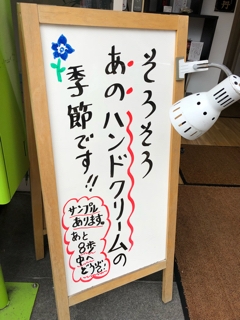 そろそろ
あのハンドクリームの
季節です!!
サンプル
あります。
あと
8歩
中へ
どうぞ!